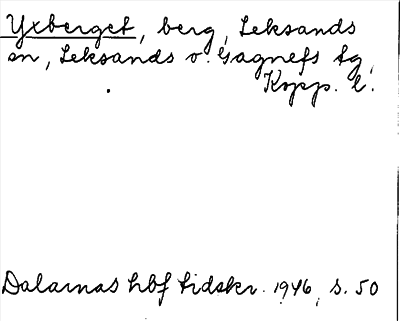 Yxberget, berg, Leksands
sn, Leksands o. Gagnefs tg,
Kopp. l.
Dalarnas hbf tidskr. 1946, s. 50